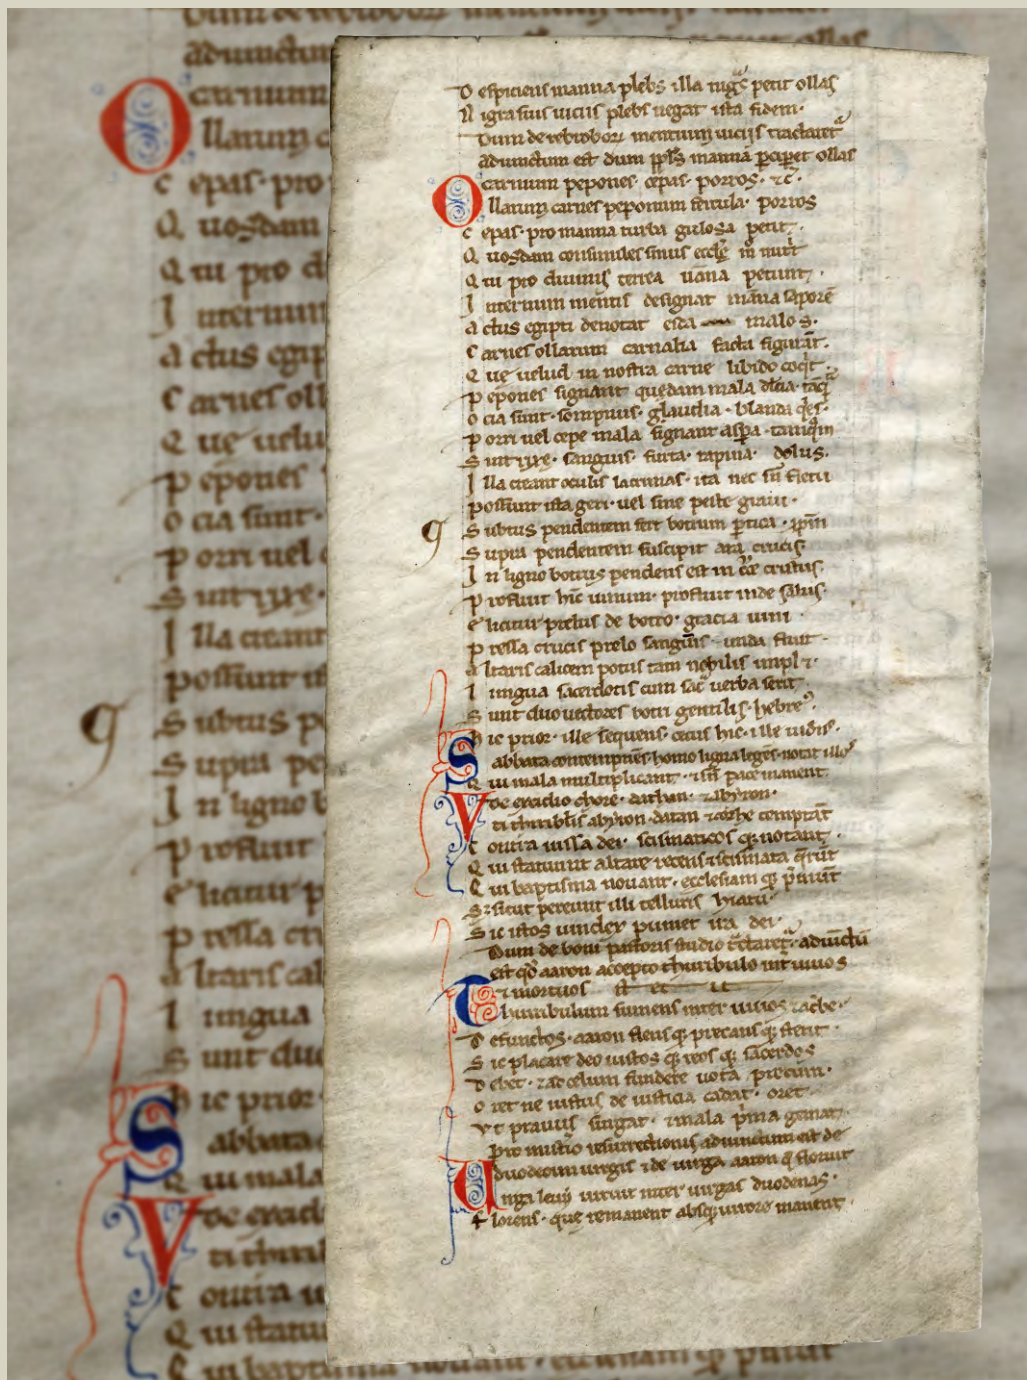 D espiciens manna plebs illa petit ollas
N igra suis uiciis plebs negat ista fidem.
Dum de rebrobor mentium uiciis tractaret
adiunctum est dum ppls manna pciperet ollas
carnium pepones. cepas. porros. &c.
O llarum carnes peponum fercula. porros
c epas. pro manna turba gulosa petit.
Q uosdam consimiles sinus eccle
Q ui pro diuinis terrea uana petunt.
I nternum mentis designat manna saporē
a ctus egipti denotat esca malos.
C arnes ollarum carnalia facta figurāt.
Q ue uelud in nostra carne libido coqit
p epones signant quedam mala dulcia
o cia sunt. sompnus. blanda qes.
P orri uel cepe mala signant aspa
S unt rixe. sanguis. furta. rapina. dolus.
I lla creant oculis lacrimas. ita nec sn fletu
possunt ista geri. uel sine peste graui.
S ubtus pendentem fert botrum ptica. xpm
S upra pendentem suscipit ara crucis.
I n ligno botrus pendens est in cce cristus
P rofluit hinc uinum. profluit inde salus.
e licitur prelus de botro. gracia uini
p ressa crucis prelo sanguis unda fluit.
a ltaris calicem potus tam nobilis implet.
l ingua sacerdotis cum sac uerba serit.
S unt duo uectores botri gentilis. hebreus
h ic prior. ille sequens. cecus hic. ille uidens.
S abbata contempnes. homo ligna legens. notat illos
Q ui mala multiplicant. pace manent.
De excidio chore. dathan. & abyron.
V ti thuribulis abyron. datan & corhe temptāt
C ontra iussa dei. scismaticos q notant.
Q ui statuunt altare recens & scismata qrūt
Q ui baptisma nouant. ecclesiam q pmūt
S; sicut pereunt illi telluris hiatu.
S ic istos uindex puniet ira dei.
Dum de boni pastoris studio adiunctū
est qd aaron accepto thuribulo int uiuos
& mortuos
T huribulum sumens inter uiuos
D efunctos. aaron flens q precans q stetit.
S ic placare deo iustos q reos q sacerdos
D ebet. & ad celum fundere uota precum.
o ret ne iustus de iusticia cadat. oret
V t prauus surgat. & mala pma gemat
pro misterio resurrectionis adiunctum est de
duodecim uirgis & de uirga aaron q floruit
U irga leuy uiruit inter uirgas duodenas.
f lorens. que remanent absq uirore manent.